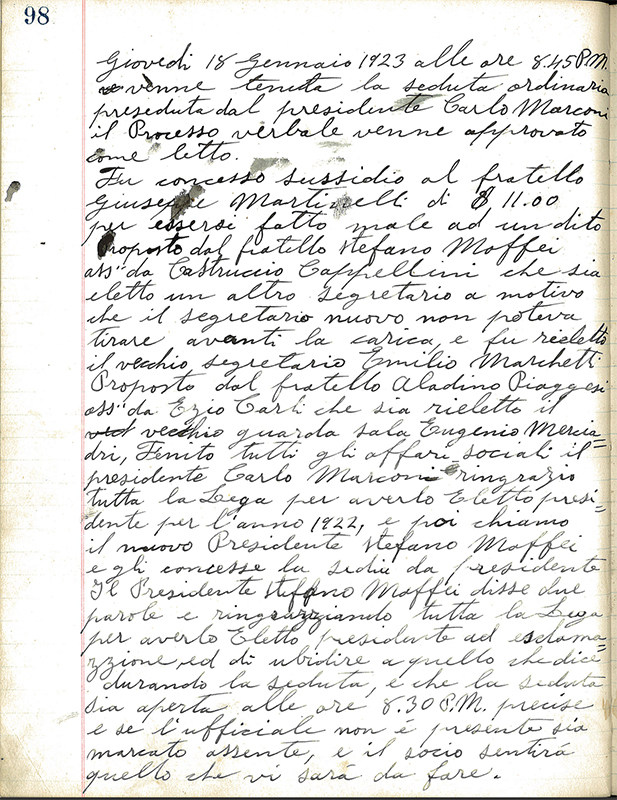 98
Giovedi 18 Gennaio 1923 alle ore 8.45 P.M.
e venne tenuta la seduta ordinaria
preseduta dal presidente Carlo Marconi
il Processo verbale venne approvato
come letto.
Fu concesso sussidio al fratello
Giuseppe Martinelli di $ 11.00
per essersi fatto male ad un dito
Proposto dal fratello Stefano Maffei
ass.to da Castruccio Cappellini che sia
eletto un altro segretario a motivo
che il segretario nuovo non poteva
tirare avanti la carica, e fu rieletto
il vecchio segretario Emilio Marchetti
Proposto dal fratello Aladino Piaggesi
ass.to da Ezio Carli che sia rieletto il
vecchio guarda sala Eugenio Mercia=
dri, Fenito tutti gli affari sociali il
presidente Carlo Marconi ringrazio
tutta la Lega per averlo Eletto presi=
dente per l'anno 1922, e poi chiamo
il nuovo Presidente Stefano Maffei
e gli concesse la sedia da presidente
Il Presidente Steffano Maffei disse due
parole e ringrazziando tutta la Lega
per averlo Eletto presidente ad esclama=
zzione, ed di ubidire a quello che dice
durando la seduta, e che la seduta
sia aperta alle ore 8.30 P.M. precise
e se l'ufficiale non é presente sia
marcato assente, e il socio sentirá
quello che vi sará da fare.